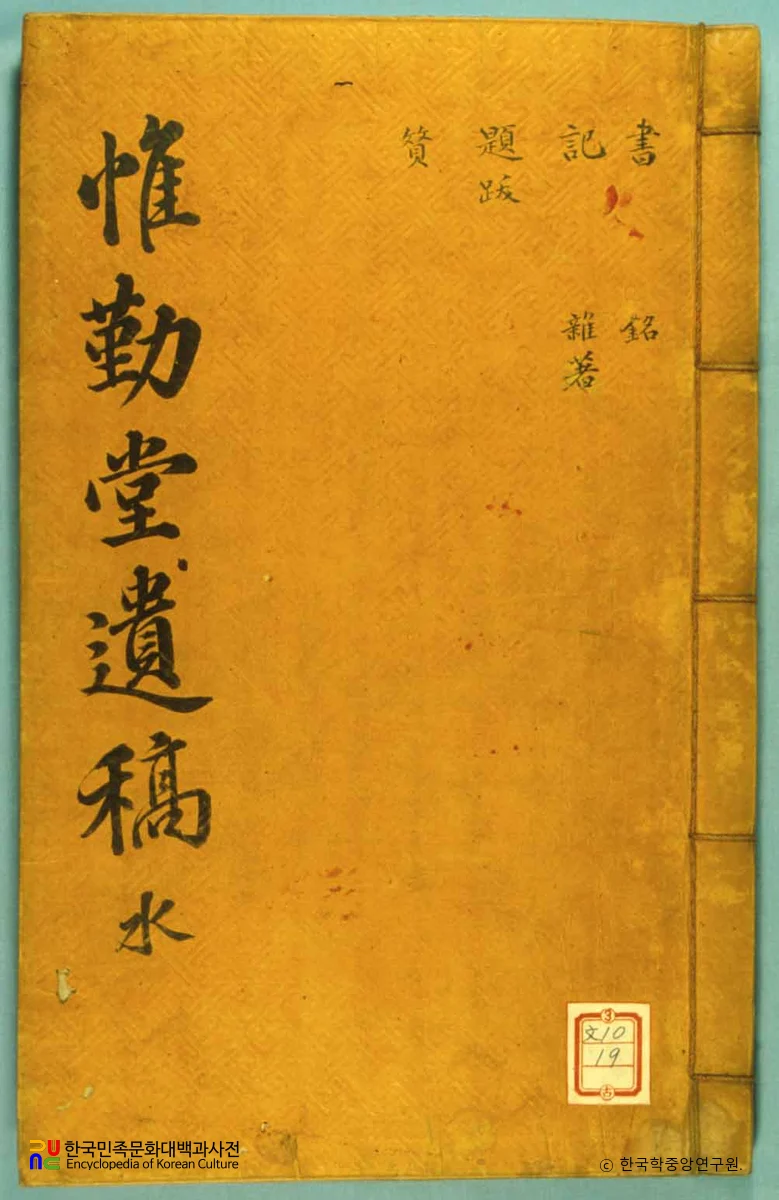 書 銘
記 雜著
題跋
贊
惟勤堂遺稿 水
文10
19
古
한국민족문화대백과사전
Encyclopedia of Korean Culture
© 한국학중앙연구원